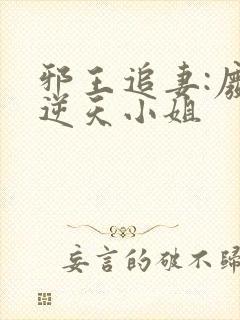 邪王追妻:废
逆天小姐
妄言的破不归